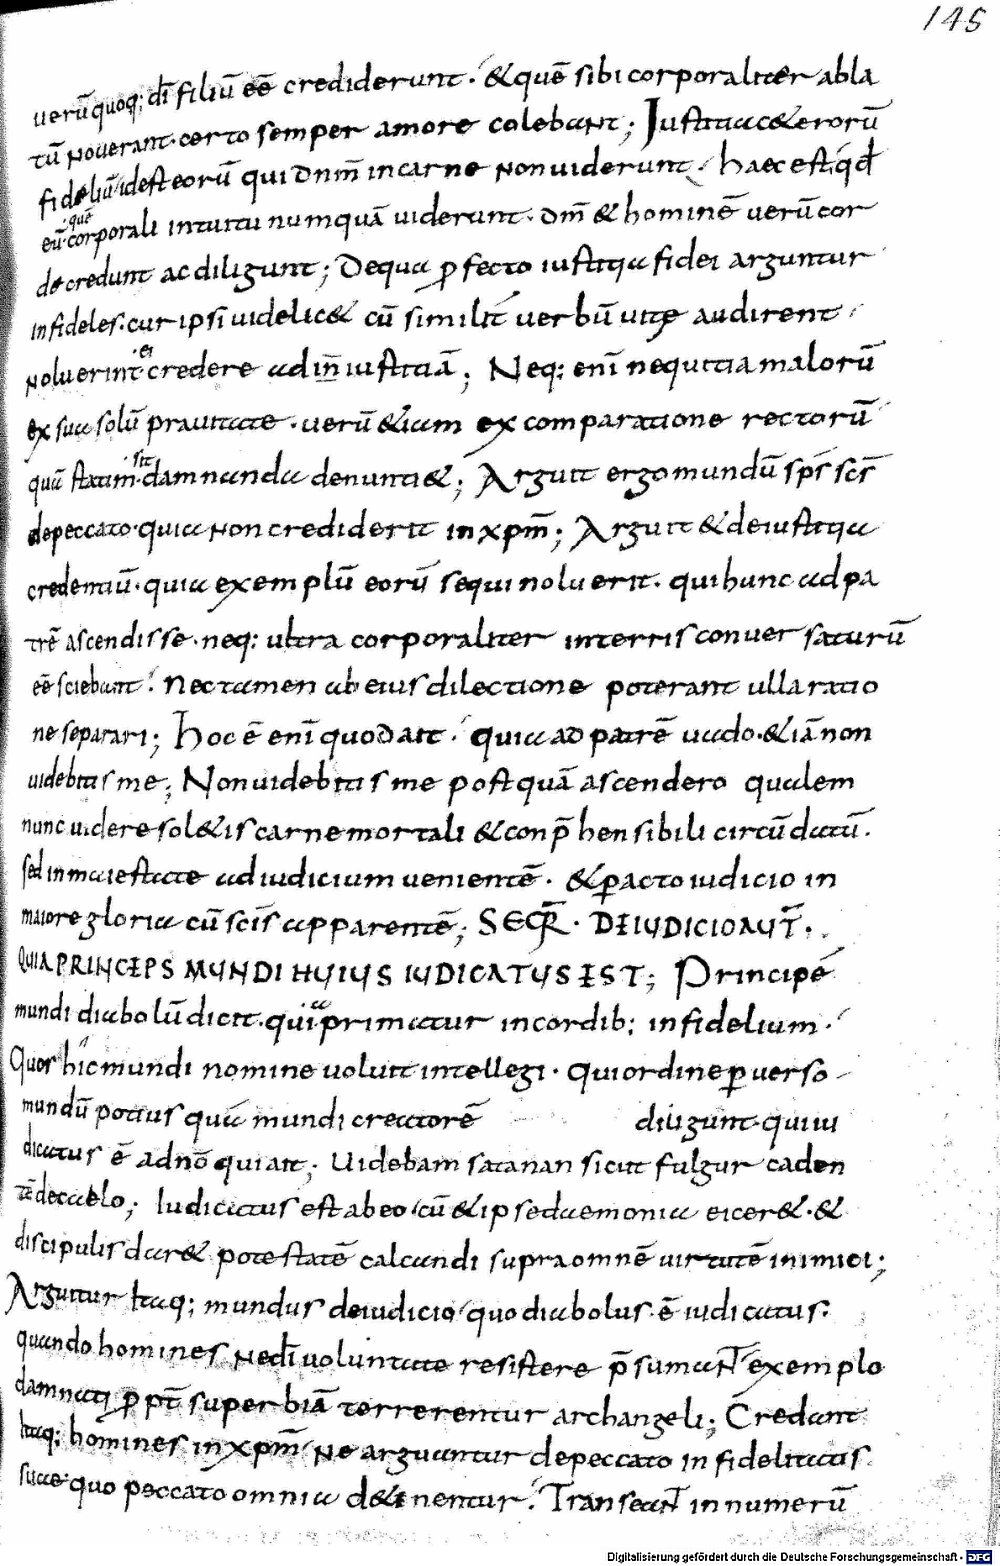 145
uerū quoq; dī filiū eē crediderunt · & quē sibi corporaliter abla
tū nouerant · certo semper amore colebant; Iustitiae & erorū
fideliū idest eorū qui dnm̄ in carne non uiderunt · haec est qđ
quē
eū · corporali intuitu numquā uiderunt · dm̄ & hominē uerū cor
de credunt ac diligunt; De qua ꝑfecto iustitia fidei arguntur
infideles · cur ipsi uidelic& cū similit̄ uerbū uitę audirent ·
ei
noluerint credere ad in̄ iustitiā; Neq: enī nequitia malorū
ex sua solū prauitate · uerū & iam ex comparatione rectorū
sit
quā statim damnanda denunti&; Arguit ergo mundū sp̄s sc̄s
de peccato · quia non crediderit in xpm̄; Arguit & de iustitia
credentiū · quia exemplū eorū sequi noluerit · qui hunc ad pa
trē ascendisse · neq: ultra corporaliter interris conuersaturū
eē sciebant · nec tamen ab eius dilectione poterant ulla ratio
ne separari; Hoc ē enī quod ait · quia ad patrē uado · & iā non
uidebitis me; Non uidebitis me postquā ascendero qualem
nunc uidere sol&is carne mortali & conp̄hensibili circūdatū ·
sed in maiestate ad iudicium uenientē · & ꝑacto iudicio in
maiore gloria cū sc̄is apparentē; SEQR̄ · DE IUDICIO AUT̄ ·
QUIA PRINCEPS MUNDI HUIUS IUDICATUS EST; Principē
mundi diabolū dicit · quia primatur in cordib: infidelium ·
Quos hic mundi nomine uoluit intellegi · Qui ordine ꝑuerso
mundū potius quā mundi creatorē diligunt · qui iu
dicatus ē a dnō qui ait; Uidebam satanan sicut fulgur caden
tē de caelo; Iudicatus est ab eo cū & ipse daemonia eicer& · &
discipulis dar& potestatē calcandi supra omnē uirtutē inimici;
Arguitur itaq; mundus de iudicio quo diabolus ē iudicatus ·
quando homines ne dī uoluntate resistere p̄sumant exemplo
damnati ꝓpt̄ superbiā terrerentur archangeli; Credant
itaq: homines in xpm̄ · ne arguantur de peccato infidelitatis
suae · quo peccato omnia detinentur · Transeant in numerū
Digitalisierung gefördert durch die Deutsche Forschungsgemeinschaft - DFG